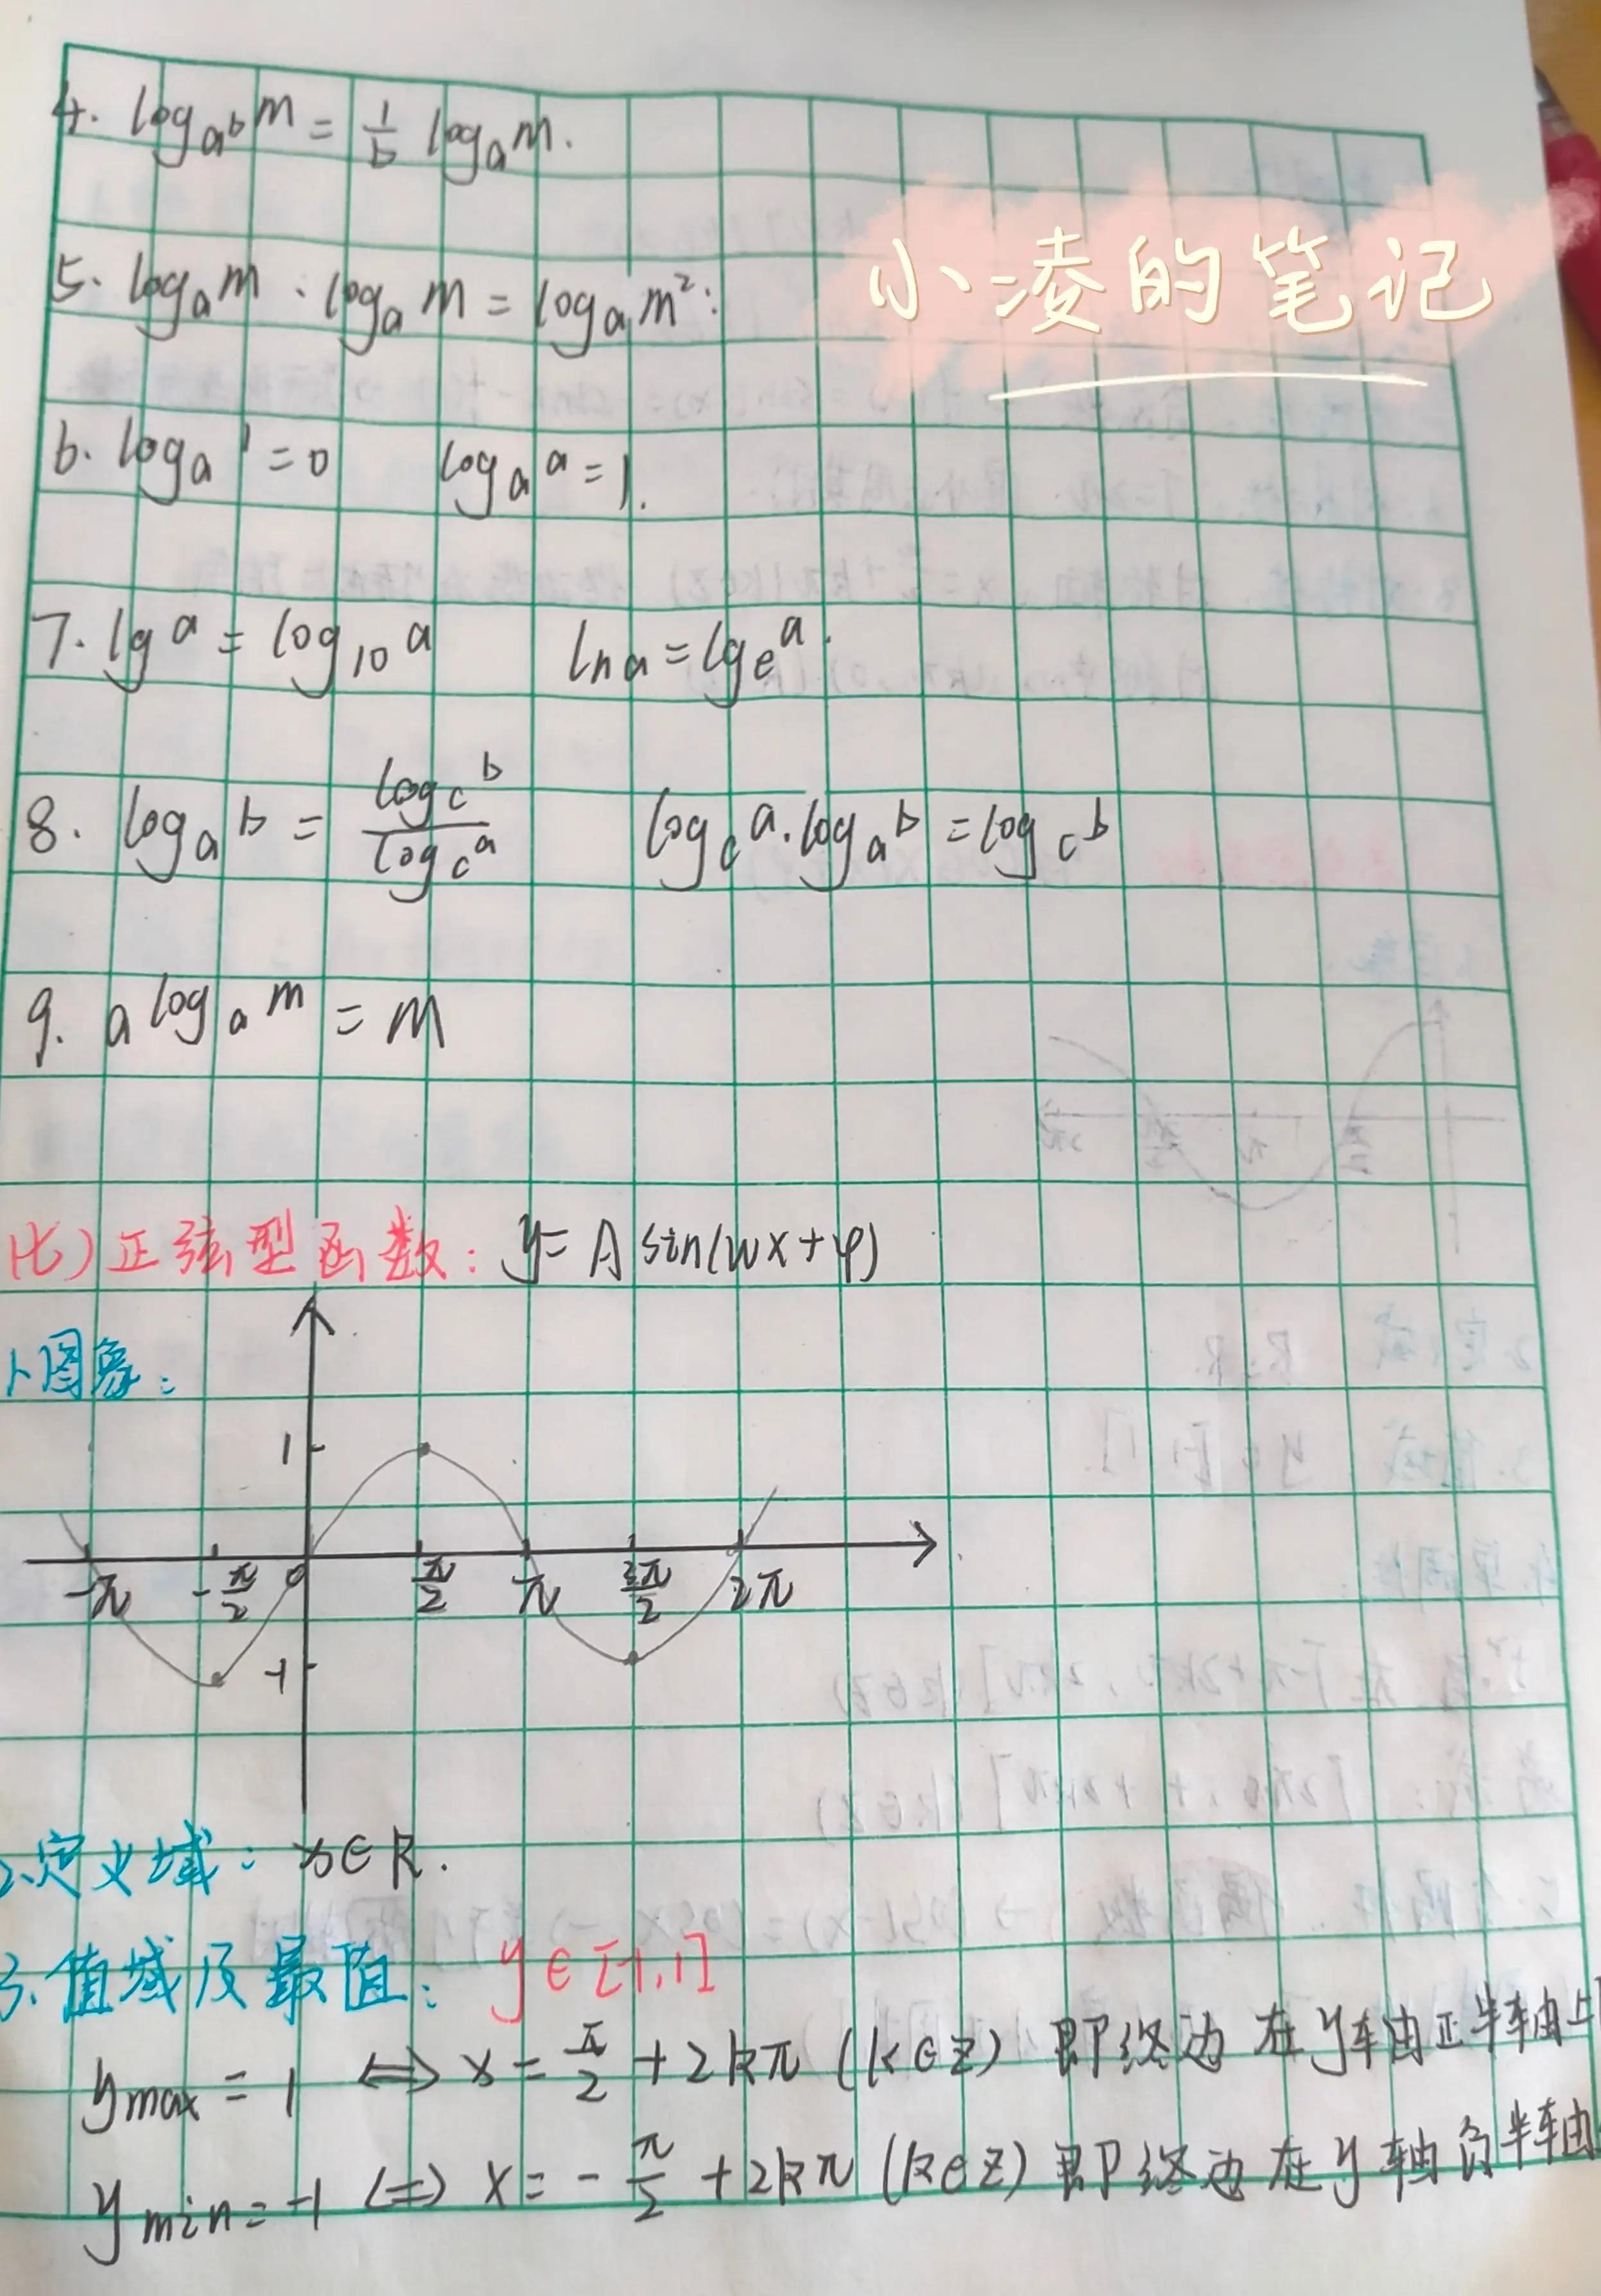 4. log_{a^b} m = \frac{1}{b} log_a m.
小凌的笔记
5. log_a m · log_a m = log_a m²:
6. log_a 1 = 0 log_a a = 1.
7. lg a = log_{10} a ln a = lg_e a.
8. log_a b = \frac{log_c b}{log_c a} log_c a · log_a b = log_c b
9. a^{log_a m} = m
(七) 正弦型函数: y = A sin(wx+φ)
1.图象:
1
-π -\frac{π}{2} 0 \frac{π}{2} π \frac{3π}{2} 2π
-1
2.定义域: x∈R.
3.值域及最值: y∈[-1,1]
y_{max} = 1 ⟺ x = \frac{π}{2} + 2kπ (k∈Z) 即终边在y轴由正半轴上
y_{min} = -1 ⟺ x = -\frac{π}{2} + 2kπ (k∈Z) 即终边在y轴负半轴